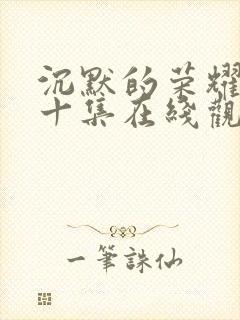 沉默的荣耀
十集在綫觀
一筆誅仙